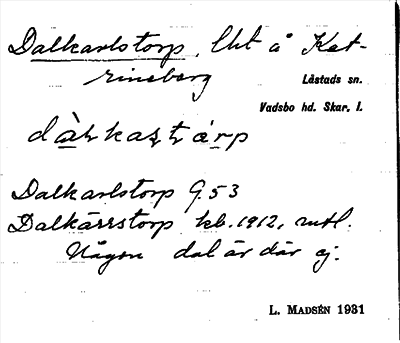 Dalkarlstorp, lht å Kat-
rineberg
Låstads sn.
Vadsbo hd. Skar. l.
dàlkastárp
Dalkarlstorp G. 53
Dalkärrstorp kb. 1912, muntl.
Någon dal är där ej.
L. MADSÉN 1931